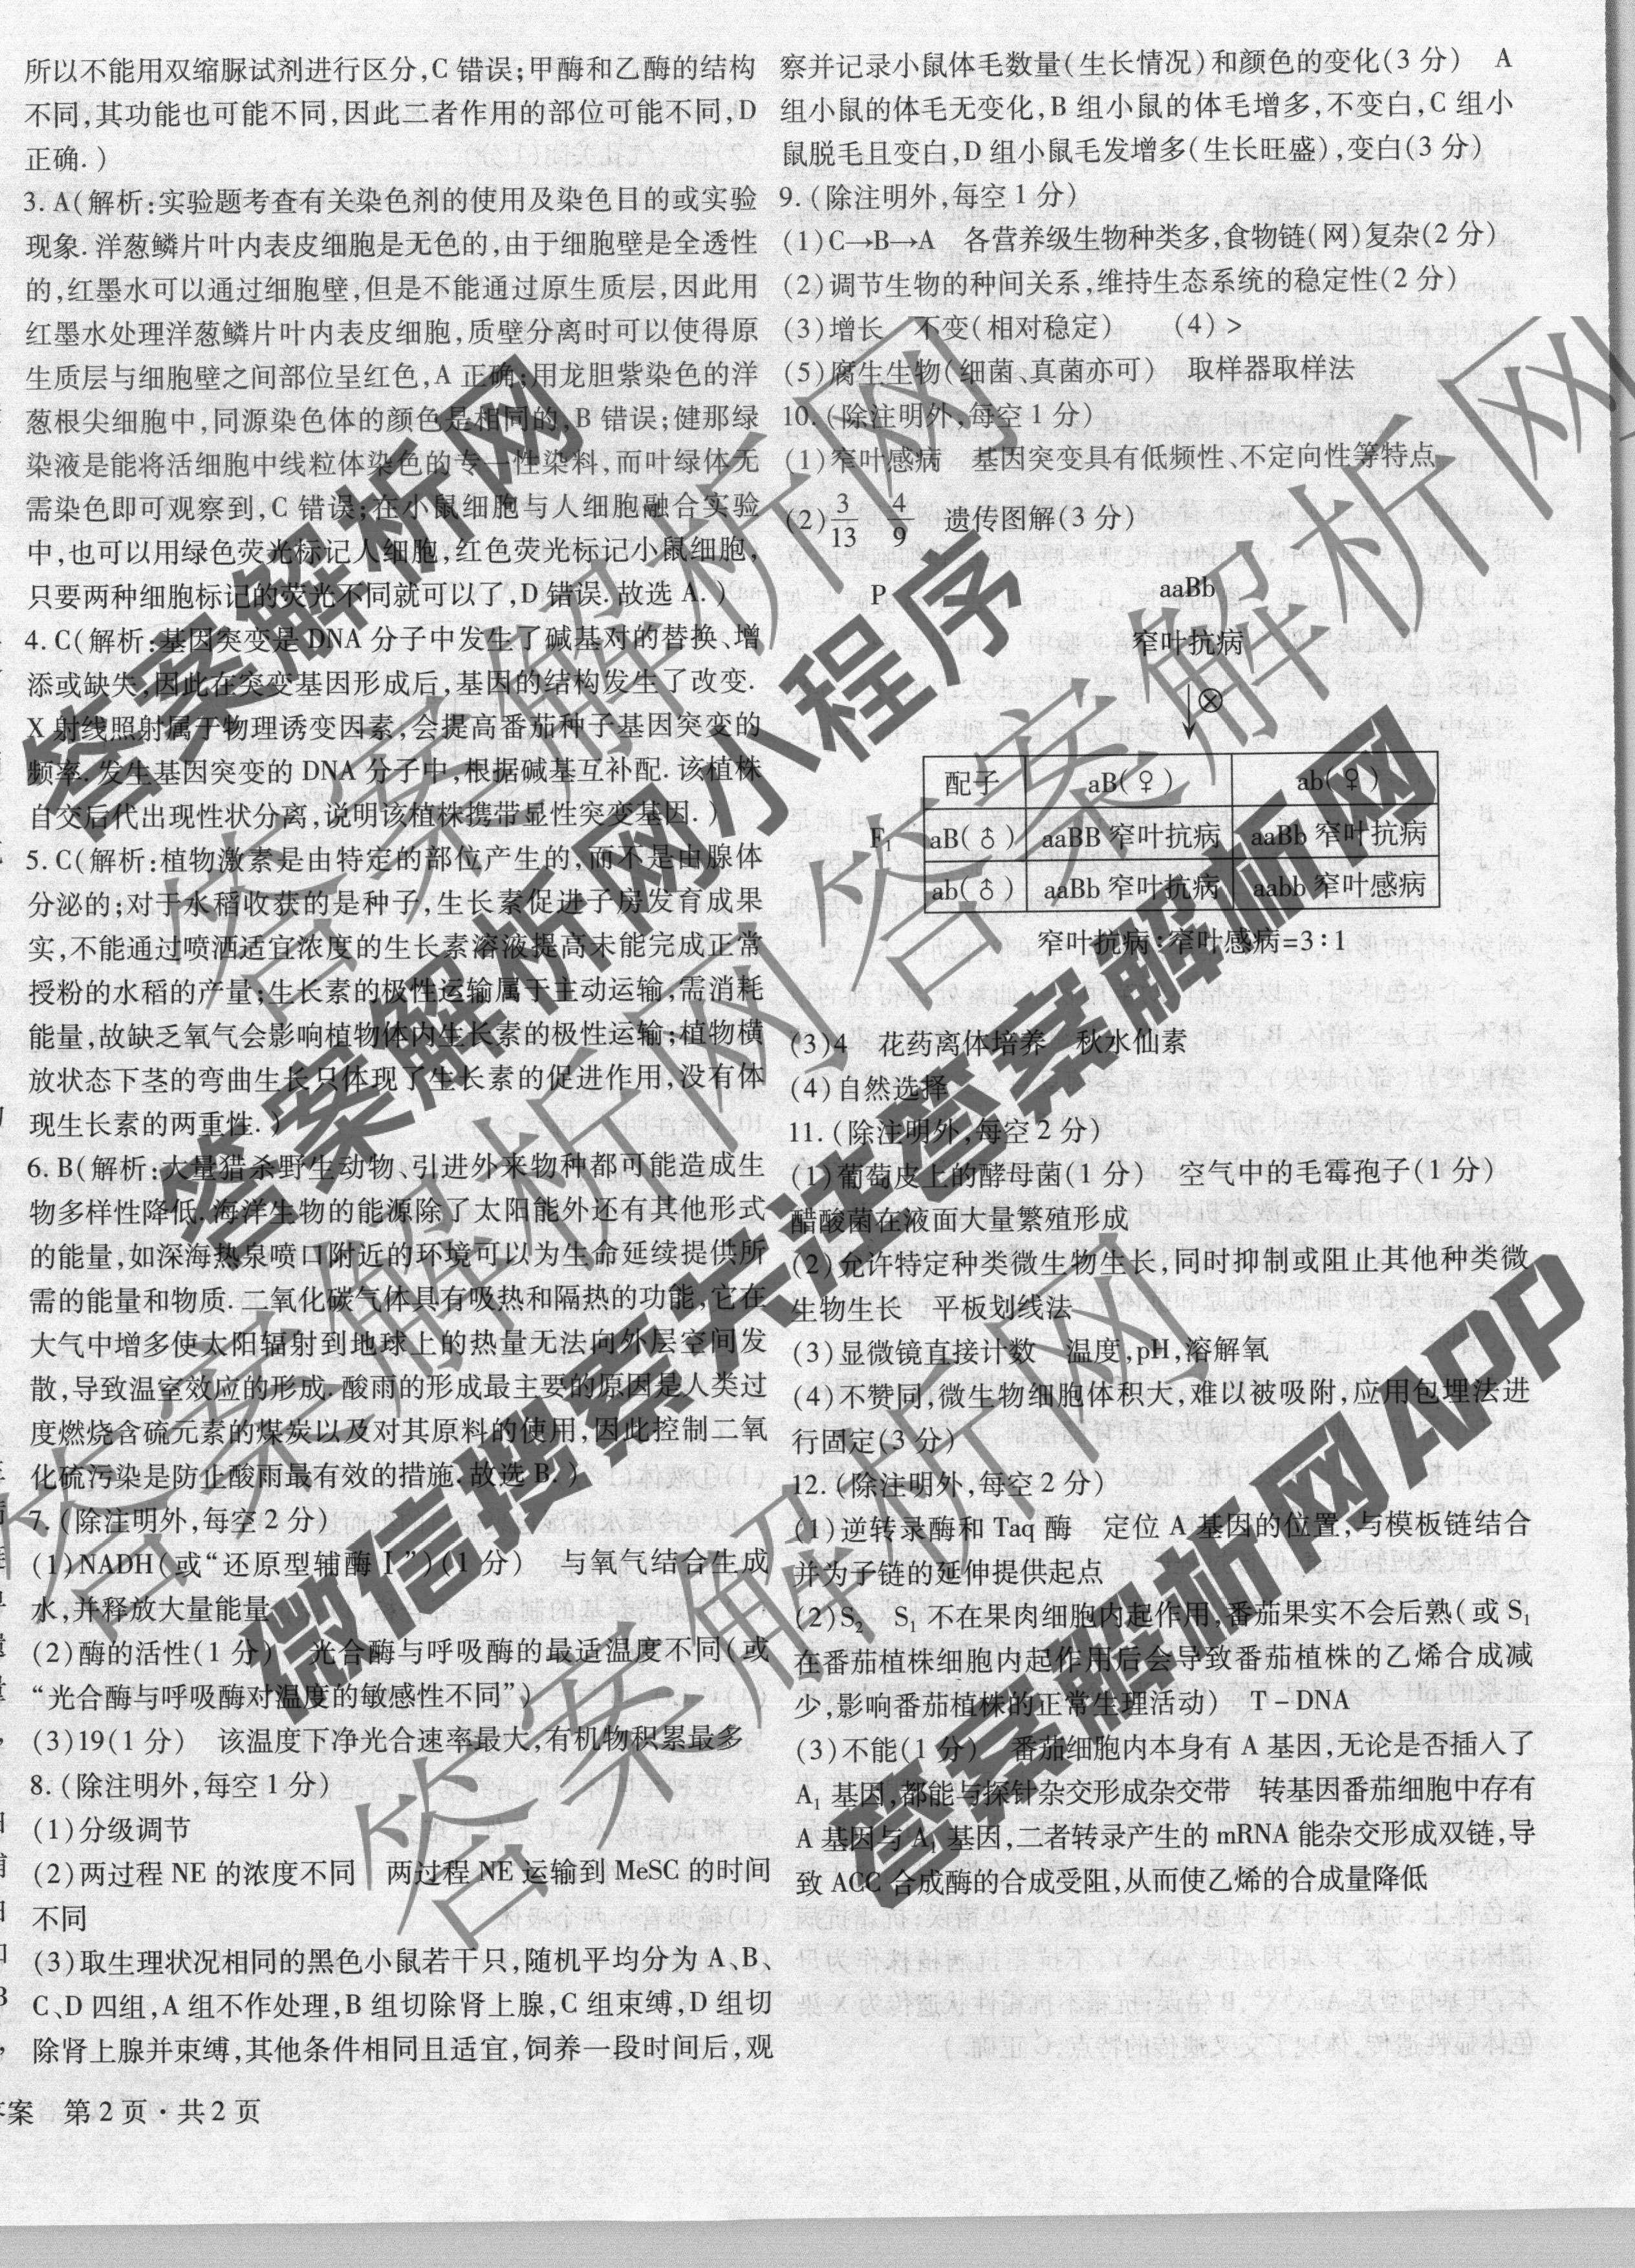 所以不能用双缩脲试剂进行区分,C 错误;甲酶和乙酶的结构
不同,其功能也可能不同,因此二者作用的部位可能不同,D
正确.)
3. A(解析:实验题考查有关染色剂的使用及染色目的或实验
现象. 洋葱鳞片叶内表皮细胞是无色的,由于细胞壁是全透性
的,红墨水可以通过细胞壁,但是不能通过原生质层,因此用
红墨水处理洋葱鳞片叶内表皮细胞,质壁分离时可以使得原
生质层与细胞壁之间部位呈红色,A 正确;用龙胆紫染色的洋
葱根尖细胞中,同源染色体的颜色是相同的,B 错误;健那绿
染液是能将活细胞中线粒体染色的专一性染料,而叶绿体无
需染色即可观察到,C 错误;在小鼠细胞与人细胞融合实验
中,也可以用绿色荧光标记人细胞,红色荧光标记小鼠细胞,
只要两种细胞标记的荧光不同就可以了,D 错误. 故选 A.)
4. C(解析:基因突变是 DNA 分子中发生了碱基对的替换、增
添或缺失,因此在突变基因形成后,基因的结构发生了改变.
X 射线照射属于物理诱变因素,会提高番茄种子基因突变的
频率. 发生基因突变的 DNA 分子中,根据碱基互补配. 该植株
自交后代出现性状分离,说明该植株携带显性突变基因.)
5. C(解析:植物激素是由特定的部位产生的,而不是由腺体
分泌的;对于水稻收获的是种子,生长素促进子房发育成果
实,不能通过喷洒适宜浓度的生长素溶液提高未能完成正常
授粉的水稻的产量;生长素的极性运输属于主动运输,需消耗
能量,故缺乏氧气会影响植物体内生长素的极性运输;植物横
放状态下茎的弯曲生长只体现了生长素的促进作用,没有体
现生长素的两重性.)
6. B(解析:大量猎杀野生动物、引进外来物种都可能造成生
物多样性降低. 海洋生物的能源除了太阳能外还有其他形式
的能量,如深海热泉喷口附近的环境可以为生命延续提供所
需的能量和物质. 二氧化碳气体具有吸热和隔热的功能,它在
大气中增多使太阳辐射到地球上的热量无法向外层空间发
散,导致温室效应的形成. 酸雨的形成最主要的原因是人类过
度燃烧含硫元素的煤炭以及对其原料的使用,因此控制二氧
化硫污染是防止酸雨最有效的措施. 故选 B.)
7. (除注明外,每空 2 分)
(1)NADH(或“还原型辅酶Ⅰ”)(1 分) 与氧气结合生成
水,并释放大量能量
(2)酶的活性(1 分) 光合酶与呼吸酶的最适温度不同(或
“光合酶与呼吸酶对温度的敏感性不同”)
(3)19(1 分) 该温度下净光合速率最大,有机物积累最多
8. (除注明外,每空 1 分)
(1)分级调节
(2)两过程 NE 的浓度不同 两过程 NE 运输到 MeSC 的时间
不同
(3)取生理状况相同的黑色小鼠若干只,随机平均分为 A、B、
C、D 四组,A 组不作处理,B 组切除肾上腺,C 组束缚,D 组切
除肾上腺并束缚,其他条件相同且适宜,饲养一段时间后,观
答案 第 2 页·共 2 页
察并记录小鼠体毛数量(生长情况)和颜色的变化(3 分) A
组小鼠的体毛无变化,B 组小鼠的体毛增多,不变白,C 组小
鼠脱毛且变白,D 组小鼠毛发增多(生长旺盛),变白(3 分)
9. (除注明外,每空 1 分)
(1)C→B→A 各营养级生物种类多,食物链(网)复杂(2 分)
(2)调节生物的种间关系,维持生态系统的稳定性(2 分)
(3)增长 不变(相对稳定) (4)>
(5)腐生生物(细菌、真菌亦可) 取样器取样法
10. (除注明外,每空 1 分)
(1)窄叶感病 基因突变具有低频性、不定向性等特点
(2)3/13 4/9 遗传图解(3 分)
P aaBb
窄叶抗病
↓⊗
配子 aB(♀) ab(♀)
F₁ aB(♂) aaBB 窄叶抗病 aaBb 窄叶抗病
ab(♂) aaBb 窄叶抗病 aabb 窄叶感病
窄叶抗病:窄叶感病=3:1
(3)4 花药离体培养 秋水仙素
(4)自然选择
11. (除注明外,每空 2 分)
(1)葡萄皮上的酵母菌(1 分) 空气中的毛霉孢子(1 分)
醋酸菌在液面大量繁殖形成
(2)允许特定种类微生物生长,同时抑制或阻止其他种类微
生物生长 平板划线法
(3)显微镜直接计数 温度,pH,溶解氧
(4)不赞同,微生物细胞体积大,难以被吸附,应用包埋法进
行固定(3 分)
12. (除注明外,每空 2 分)
(1)逆转录酶和 Taq 酶 定位 A 基因的位置,与模板链结合
并为子链的延伸提供起点
(2)S₂ S₁ 不在果肉细胞内起作用,番茄果实不会后熟(或 S₁
在番茄植株细胞内起作用后会导致番茄植株的乙烯合成减
少,影响番茄植株的正常生理活动) T-DNA
(3)不能(1 分) 番茄细胞内本身有 A 基因,无论是否插入了
A₁ 基因,都能与探针杂交形成杂交带 转基因番茄细胞中存有
A 基因与 A₁ 基因,二者转录产生的 mRNA 能杂交形成双链,导
致 ACC 合成酶的合成受阻,从而使乙烯的合成量降低
答案解析网
答案解析网小程序
微信搜索关注答案解析网
答案解析网APP
答案解析网
答案解析网
答案解析网
答案解析网